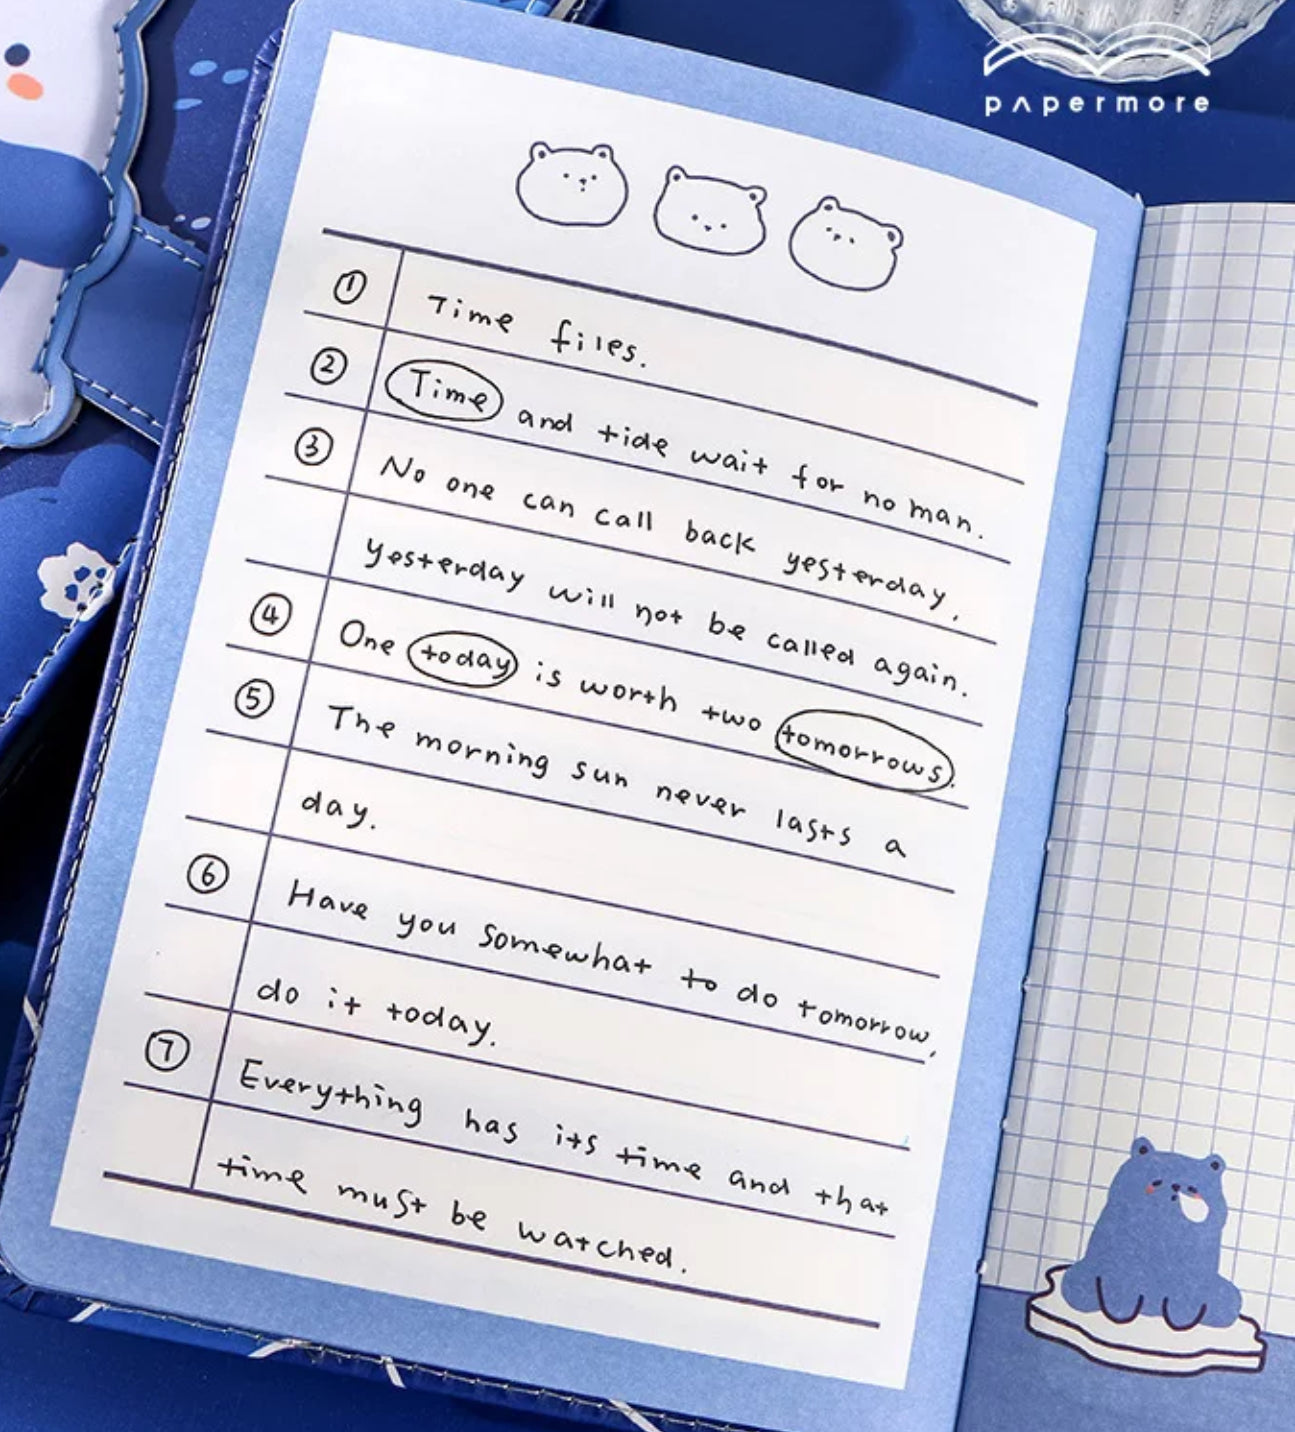 papermore
① Time files.
② Time and tide wait for no man.
③ No one can call back yesterday,
yesterday will not be called again.
④ One today is worth two tomorrows.
⑤ The morning sun never lasts a
day.
⑥ Have you somewhat to do tomorrow,
do it today.
⑦ Everything has its time and that
time must be watched.